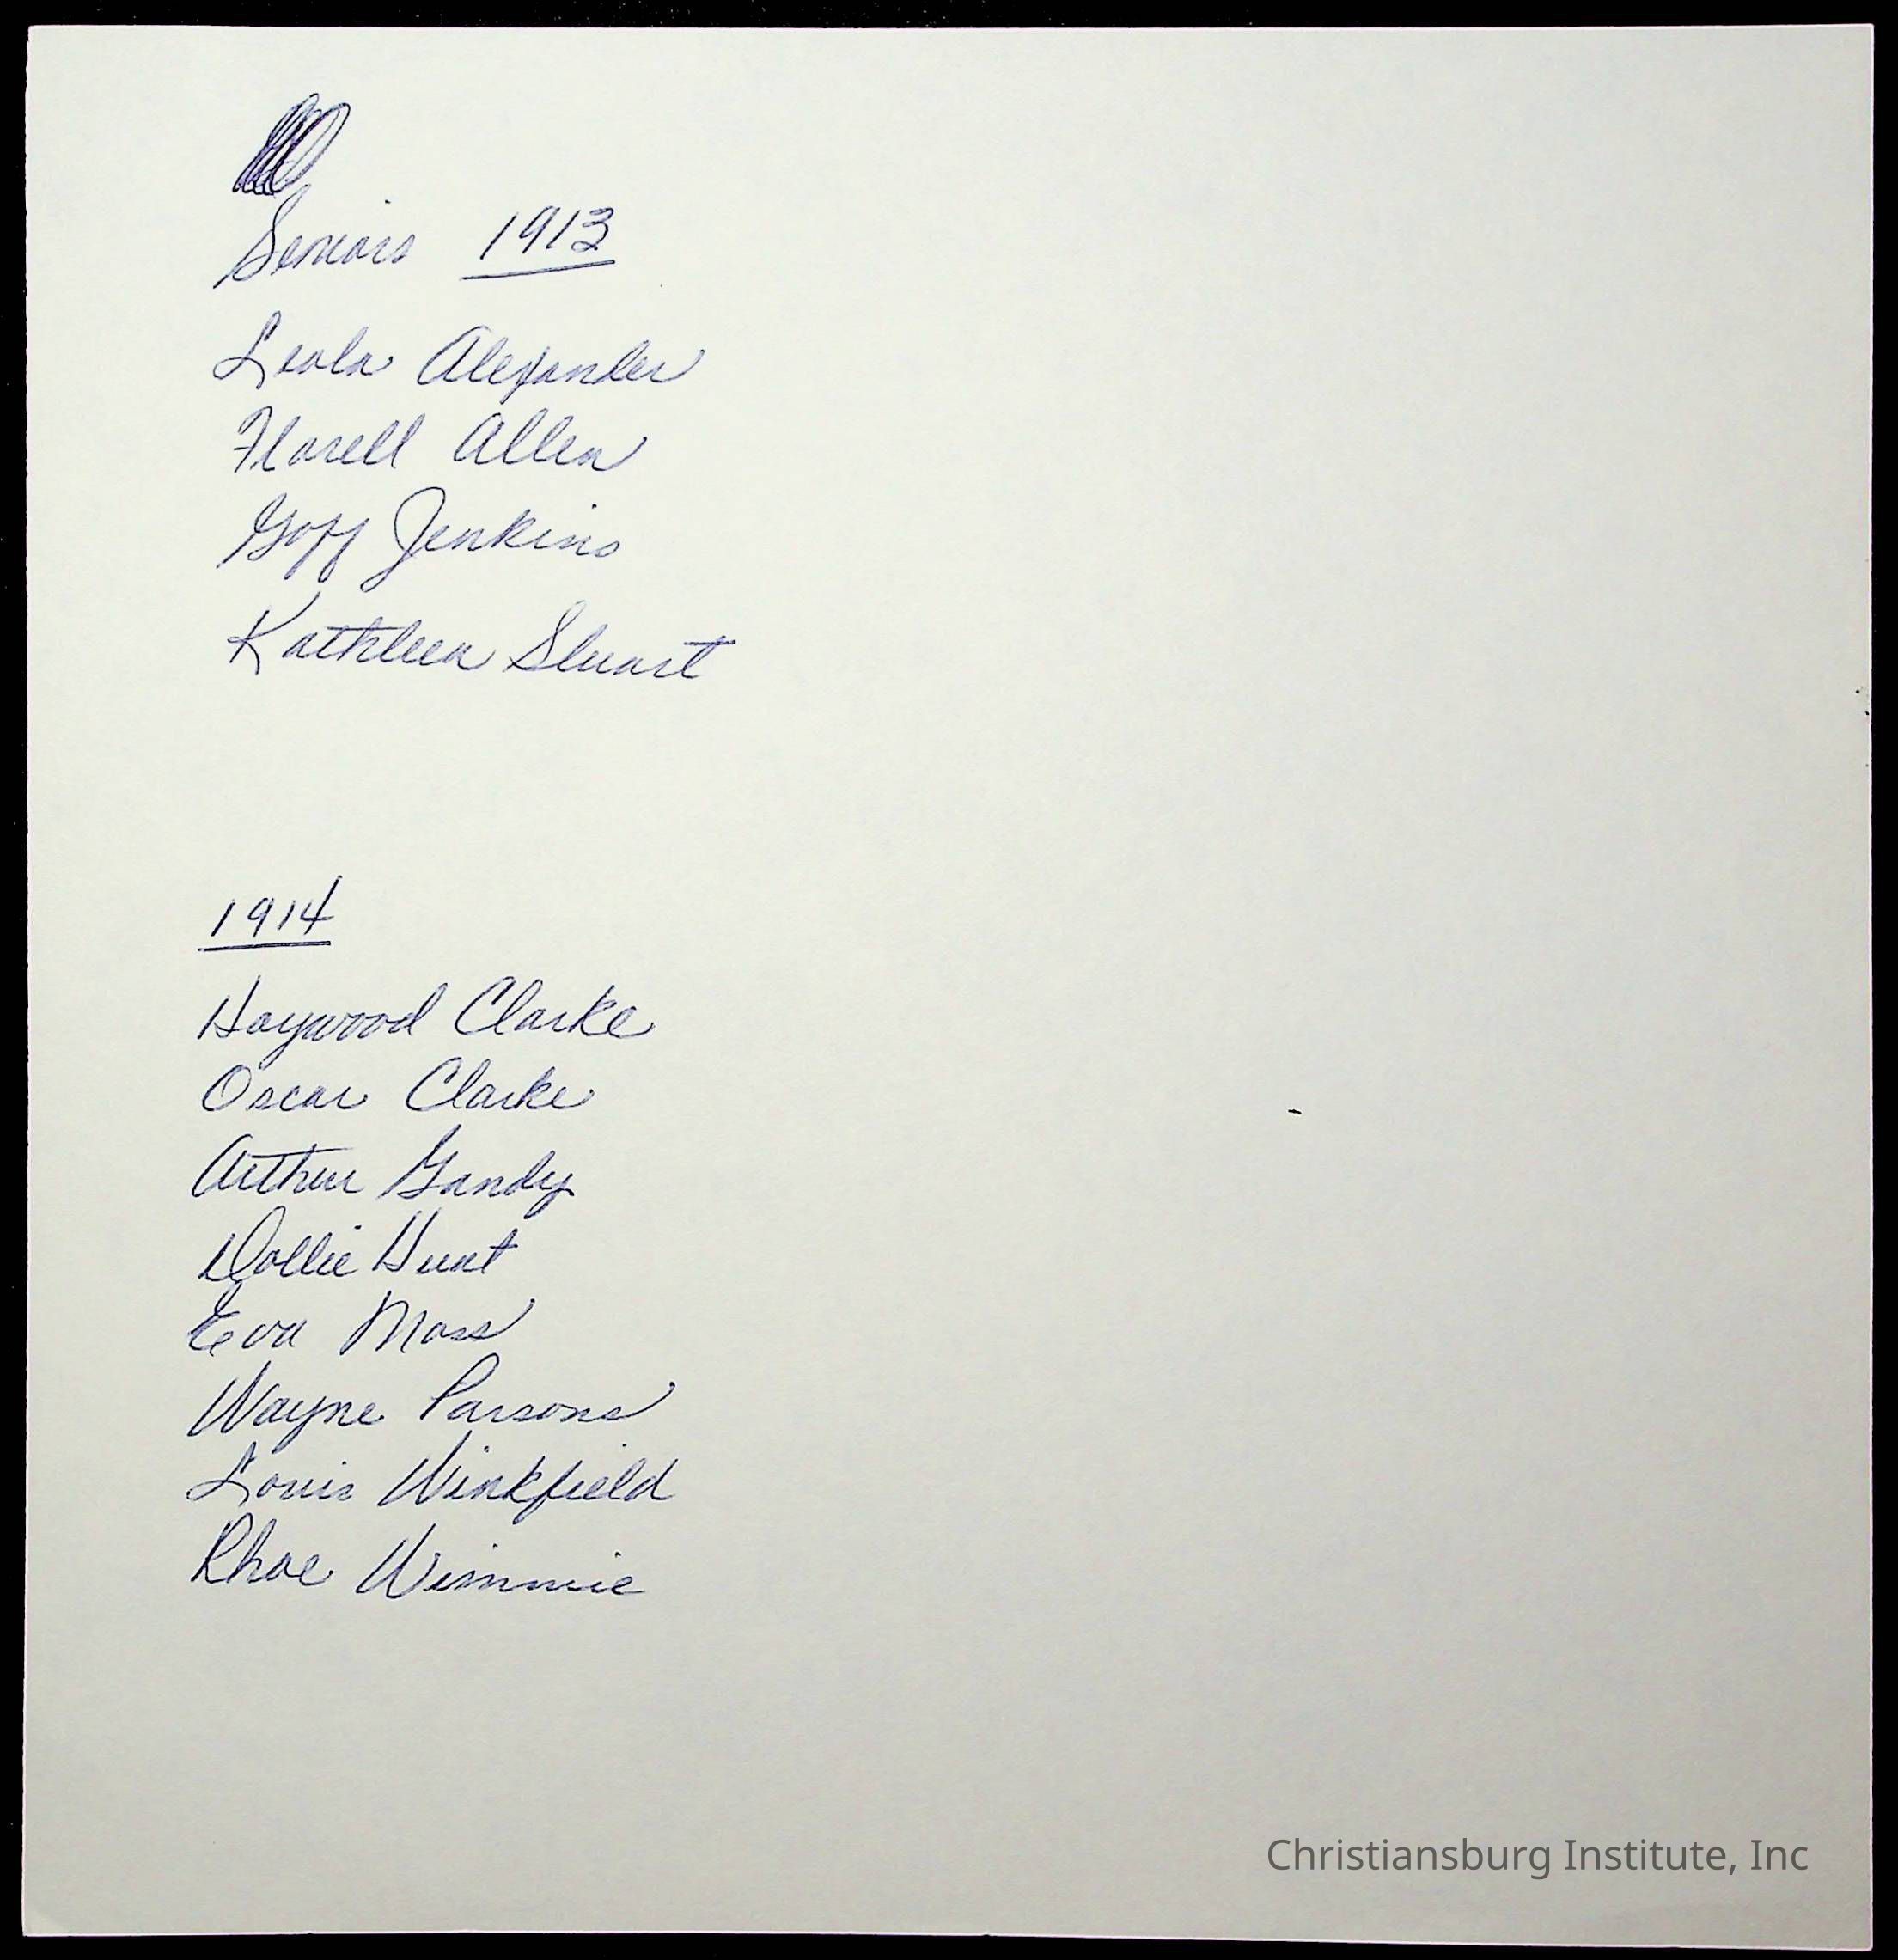 Seniors 1913
Leola Alexander
Florell Allen
Goff Jenkins
Kathleen Stuart
1914
Haywood Clarke
Oscar Clarke
Arthur Gandy
Dollie Hunt
Eva Moss
Wayne Parsons
Louis Winkfield
Rhoe Wimmie
Christiansburg Institute, Inc